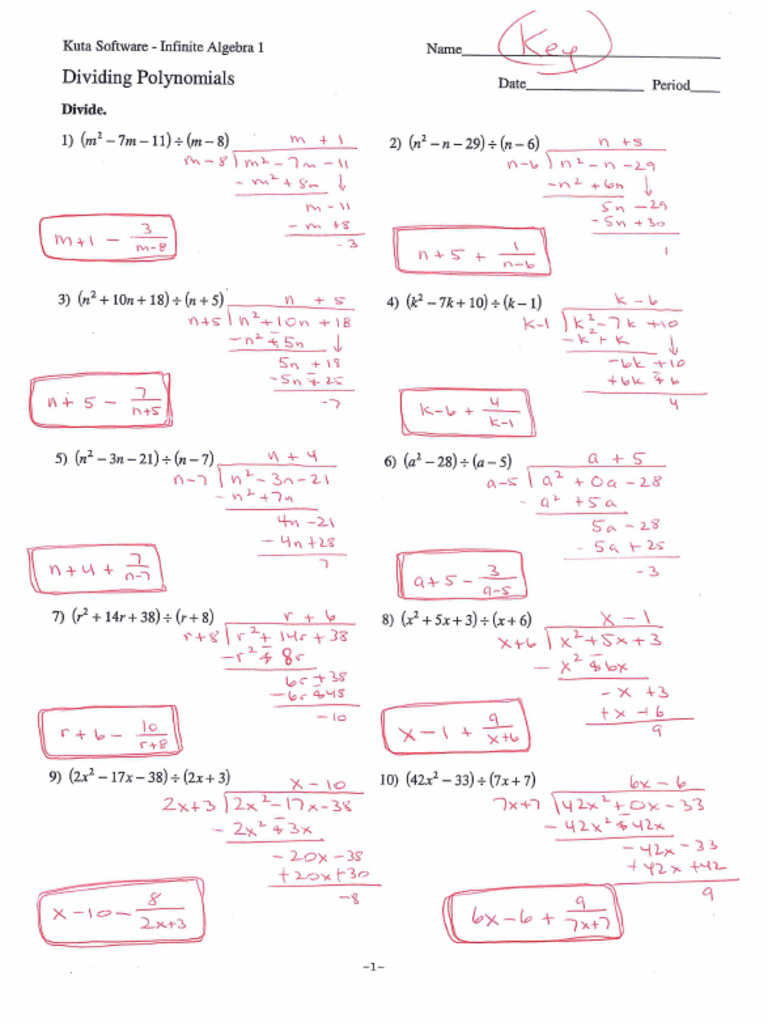 Kuta Software - Infinite Algebra 1
Name Key
Dividing Polynomials
Date Period
Divide.
1) (m² − 7m − 11) ÷ (m − 8)
m + 1
m−8 m² − 7m − 11
− m² + 8m
m − 11
− m + 8
−3
m+1 − 3/(m−8)
2) (n² − n − 29) ÷ (n − 6)
n + 5
n−6 n² − n − 29
−n² + 6n
5n − 29
−5n + 30
1
n + 5 + 1/(n−6)
3) (n² + 10n + 18) ÷ (n + 5)
n + 5
n+5 n² + 10n + 18
−n² + 5n
5n + 18
−5n + 25
−7
n + 5 − 7/(n+5)
4) (k² − 7k + 10) ÷ (k − 1)
k − 6
k−1 k² − 7k + 10
−k² + k
−6k + 10
+6k − 6
4
k−6 + 4/(k−1)
5) (n² − 3n − 21) ÷ (n − 7)
n + 4
n−7 n² − 3n − 21
− n² + 7n
4n − 21
− 4n + 28
7
n + 4 + 7/(n−7)
6) (a² − 28) ÷ (a − 5)
a + 5
a−5 a² + 0a − 28
− a² + 5a
5a − 28
− 5a + 25
−3
a + 5 − 3/(a−5)
7) (r² + 14r + 38) ÷ (r + 8)
r + 6
r+8 r² + 14r + 38
−r² − 8r
6r + 38
−6r − 48
−10
r + 6 − 10/(r+8)
8) (x² + 5x + 3) ÷ (x + 6)
x − 1
x+6 x² + 5x + 3
− x² − 6x
−x + 3
+x + 6
9
x − 1 + 9/(x+6)
9) (2x² − 17x − 38) ÷ (2x + 3)
x − 10
2x+3 2x² − 17x − 38
− 2x² − 3x
−20x − 38
+20x + 30
−8
x − 10 − 8/(2x+3)
10) (42x² − 33) ÷ (7x + 7)
6x − 6
7x+7 42x² + 0x − 33
− 42x² − 42x
−42x − 33
+42x + 42
9
6x − 6 + 9/(7x+7)
-1-